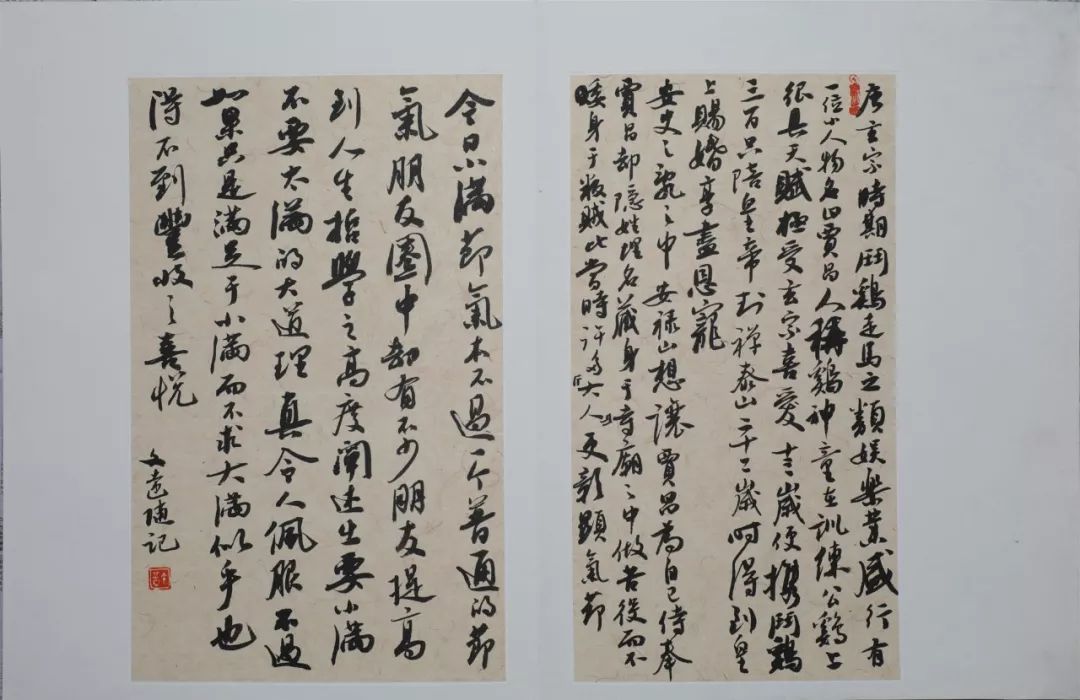 唐玄宗時期鬥鷄走馬之類娛樂業盛行有
一位小人物名曰賈昌人稱鷄神童在訓練公鷄上
很具天賦極受玄宗喜愛十三歲便攜鬥鷄
三百只陪皇帝封禅泰山二十二歲時得到皇
上賜婚享盡恩寵
安史之亂之中安禄山想讓賈昌為自己侍奉
賈昌却隱姓埋名藏身于寺廟之中做苦役而不
矮身于叛賊比當時許多「大人」更彰顯氣節
今日小滿節氣本不過一个普通的節
氣朋友圈中却有不少朋友提高
到人生哲學之高度闡述生要小滿
不要大滿的大道理真令人佩服不過
如果只是滿足于小滿而不求大滿似乎也
得不到豐收之喜悦
文遠随記